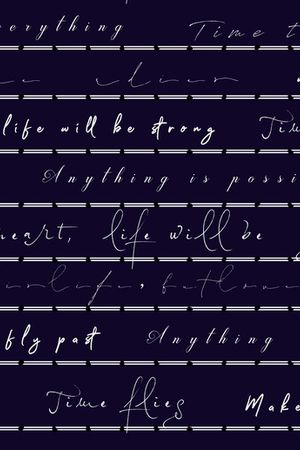 everything Time t
life will be strong Tim
Anything is possi
heart, life will be
fly past Anything
Time flies Make